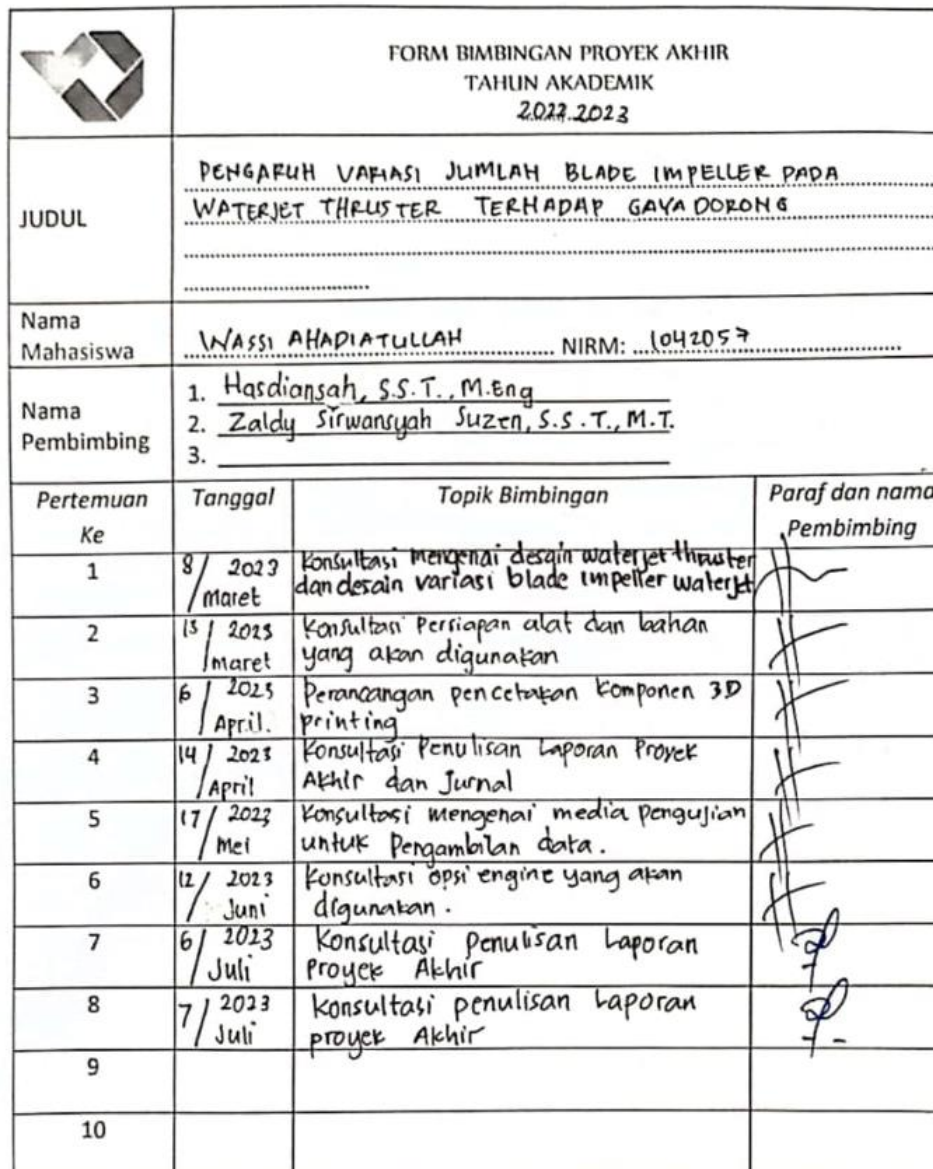 FORM BIMBINGAN PROYEK AKHIR
TAHUN AKADEMIK
2022.2023
JUDUL
PENGARUH VARIASI JUMLAH BLADE IMPELLER PADA
WATERJET THRUSTER TERHADAP GAYA DORONG
Nama
Mahasiswa
WASSI AHADIATULLAH NIRM: 1042057
Nama
Pembimbing
1. Hasdiansah, S.S.T., M.Eng
2. Zaldy Sirwansyah Suzen, S.S.T., M.T.
3.
Pertemuan
Ke
Tanggal
Topik Bimbingan
Paraf dan nama
Pembimbing
1
8/ 2023
maret
Konsultasi mengenai desain waterjet thruster
dan desain variasi blade impeller waterjet
2
13/ 2023
maret
Konsultasi Persiapan alat dan bahan
yang akan digunakan
3
6/ 2023
April.
Perancangan pencetakan komponen 3D
printing
4
14/ 2023
April
Konsultasi Penulisan Laporan Proyek
Akhir dan Jurnal
5
17/ 2023
Mei
Konsultasi mengenai media pengujian
untuk Pengambilan data.
6
12/ 2023
Juni
Konsultasi opsi engine yang akan
digunakan.
7
6/ 2023
Juli
Konsultasi penulisan Laporan
Proyek Akhir
8
7/ 2023
Juli
Konsultasi penulisan Laporan
proyek Akhir
9
10